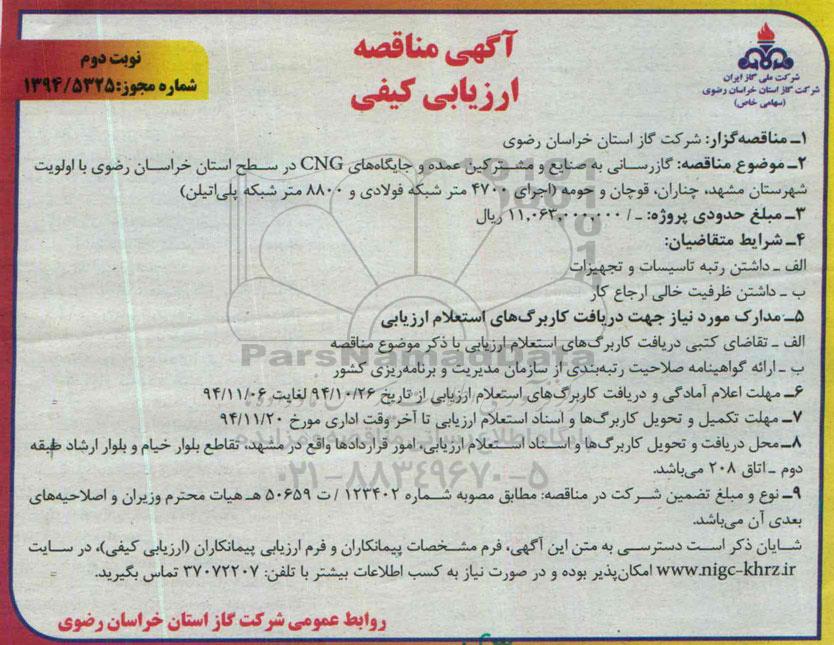 شرکت ملی گاز ایران
شرکت گاز استان خراسان رضوی
(سهامی خاص)
آگهی مناقصه
ارزیابی کیفی
نوبت دوم
شماره مجوز: ۱۳۹۴/۵۳۲۵
۱ـ مناقصه‌گزار: شرکت گاز استان خراسان رضوی
۲ـ موضوع مناقصه: گازرسانی به صنایع و مشترکین عمده و جایگاه‌های CNG در سطح استان خراسان رضوی با اولویت
شهرستان مشهد، چناران، قوچان و حومه (اجرای ۴۷۰۰ متر شبکه فولادی و ۸۸۰۰ متر شبکه پلی‌اتیلن)
۳ـ مبلغ حدودی پروژه: ـ/ ۱۱,۰۶۳,۰۰۰,۰۰۰ ریال
۴ـ شرایط متقاضیان:
الف ـ داشتن رتبه تاسیسات و تجهیزات
ب ـ داشتن ظرفیت خالی ارجاع کار
۵ـ مدارک مورد نیاز جهت دریافت کاربرگ‌های استعلام ارزیابی
الف ـ تقاضای کتبی دریافت کاربرگ‌های استعلام ارزیابی با ذکر موضوع مناقصه
ب ـ ارائه گواهینامه صلاحیت رتبه‌بندی از سازمان مدیریت و برنامه‌ریزی کشور
۶ـ مهلت اعلام آمادگی و دریافت کاربرگ‌های استعلام ارزیابی از تاریخ ۹۴/۱۰/۲۶ لغایت ۹۴/۱۱/۰۶
۷ـ مهلت تکمیل و تحویل کاربرگ‌ها و اسناد استعلام ارزیابی تا آخر وقت اداری مورخ ۹۴/۱۱/۲۰
۸ـ محل دریافت و تحویل کاربرگ‌ها و اسناد استعلام ارزیابی، امور قراردادها واقع در مشهد، تقاطع بلوار خیام و بلوار ارشاد طبقه
دوم ـ اتاق ۲۰۸ می‌باشد.
۹ـ نوع و مبلغ تضمین شرکت در مناقصه: مطابق مصوبه شماره ۱۲۳۴۰۲ / ت ۵۰۶۵۹ هـ هیات محترم وزیران و اصلاحیه‌های
بعدی آن می‌باشد.
شایان ذکر است دسترسی به متن این آگهی، فرم مشخصات پیمانکاران و فرم ارزیابی پیمانکاران (ارزیابی کیفی)، در سایت
www.nigc-khrz.ir امکان‌پذیر بوده و در صورت نیاز به کسب اطلاعات بیشتر با تلفن: ۳۷۰۷۲۲۰۷ تماس بگیرید.
روابط عمومی شرکت گاز استان خراسان رضوی
ParsNamadData
۰۲۱-۸۸۳۴۹۶۷۰-۵